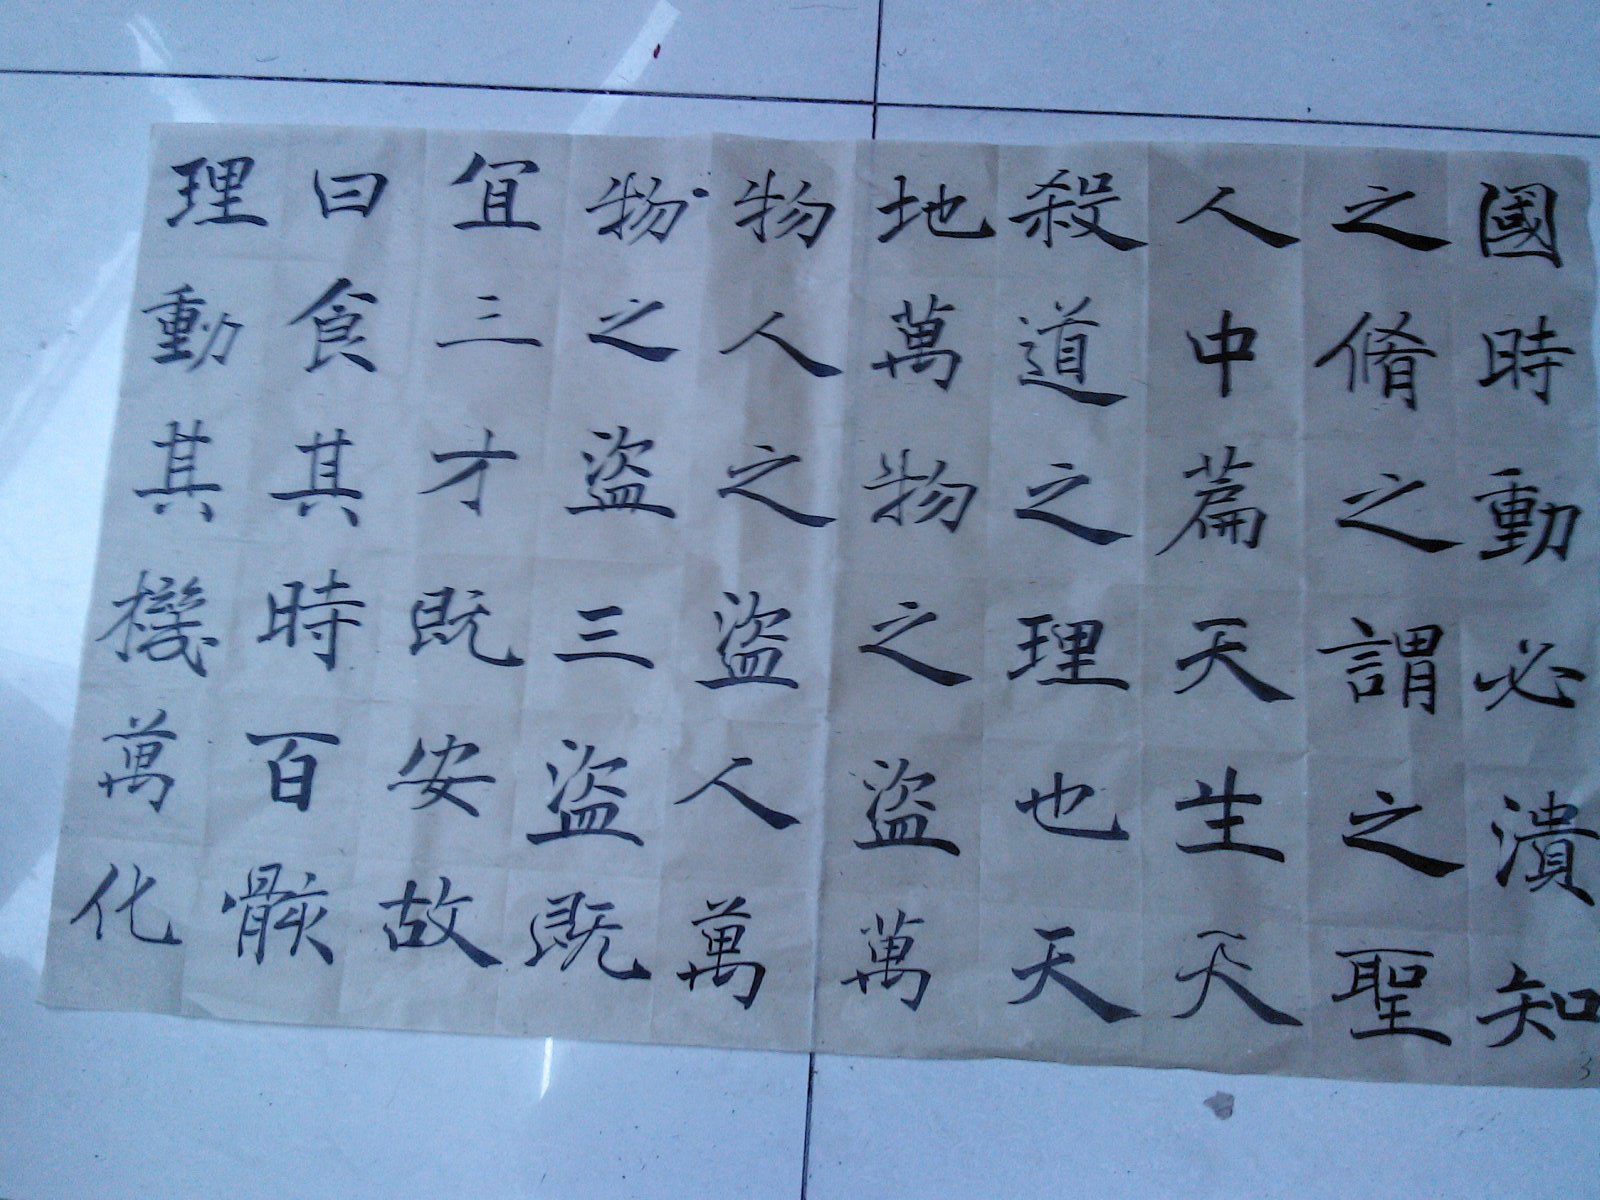 國時動必潰知
之脩之謂之聖
人中篇天生天
殺道之理也天
地萬物之盜萬
物人之盜人萬
物之盜三盜既
宜三才既安故
曰食其時百骸
理動其機萬化
3